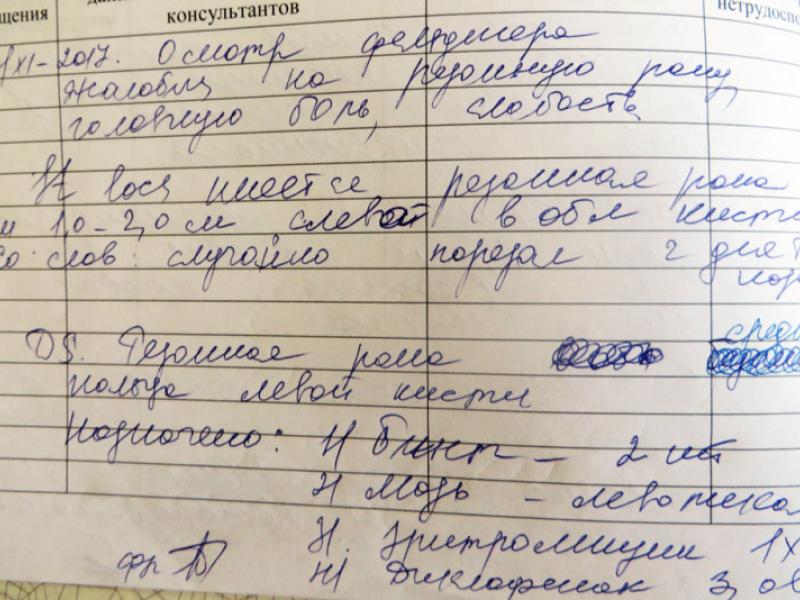 щения
консультантов
нетрудосп
XI-2017. Осмотр фельдшера
Жалобы на резанную рану,
головную боль, слабость
имеется резанная рана
1,0-2,0 см слевой в обл кисти
со слов: случайно порезал 2 дня
DS. Резанная рана средн
пальца левой кисти
Назначено: Н бинт – 2 шт
Н мазь – левомекол
Н. Эритромицин 1х
Н Диклофенак 3,0